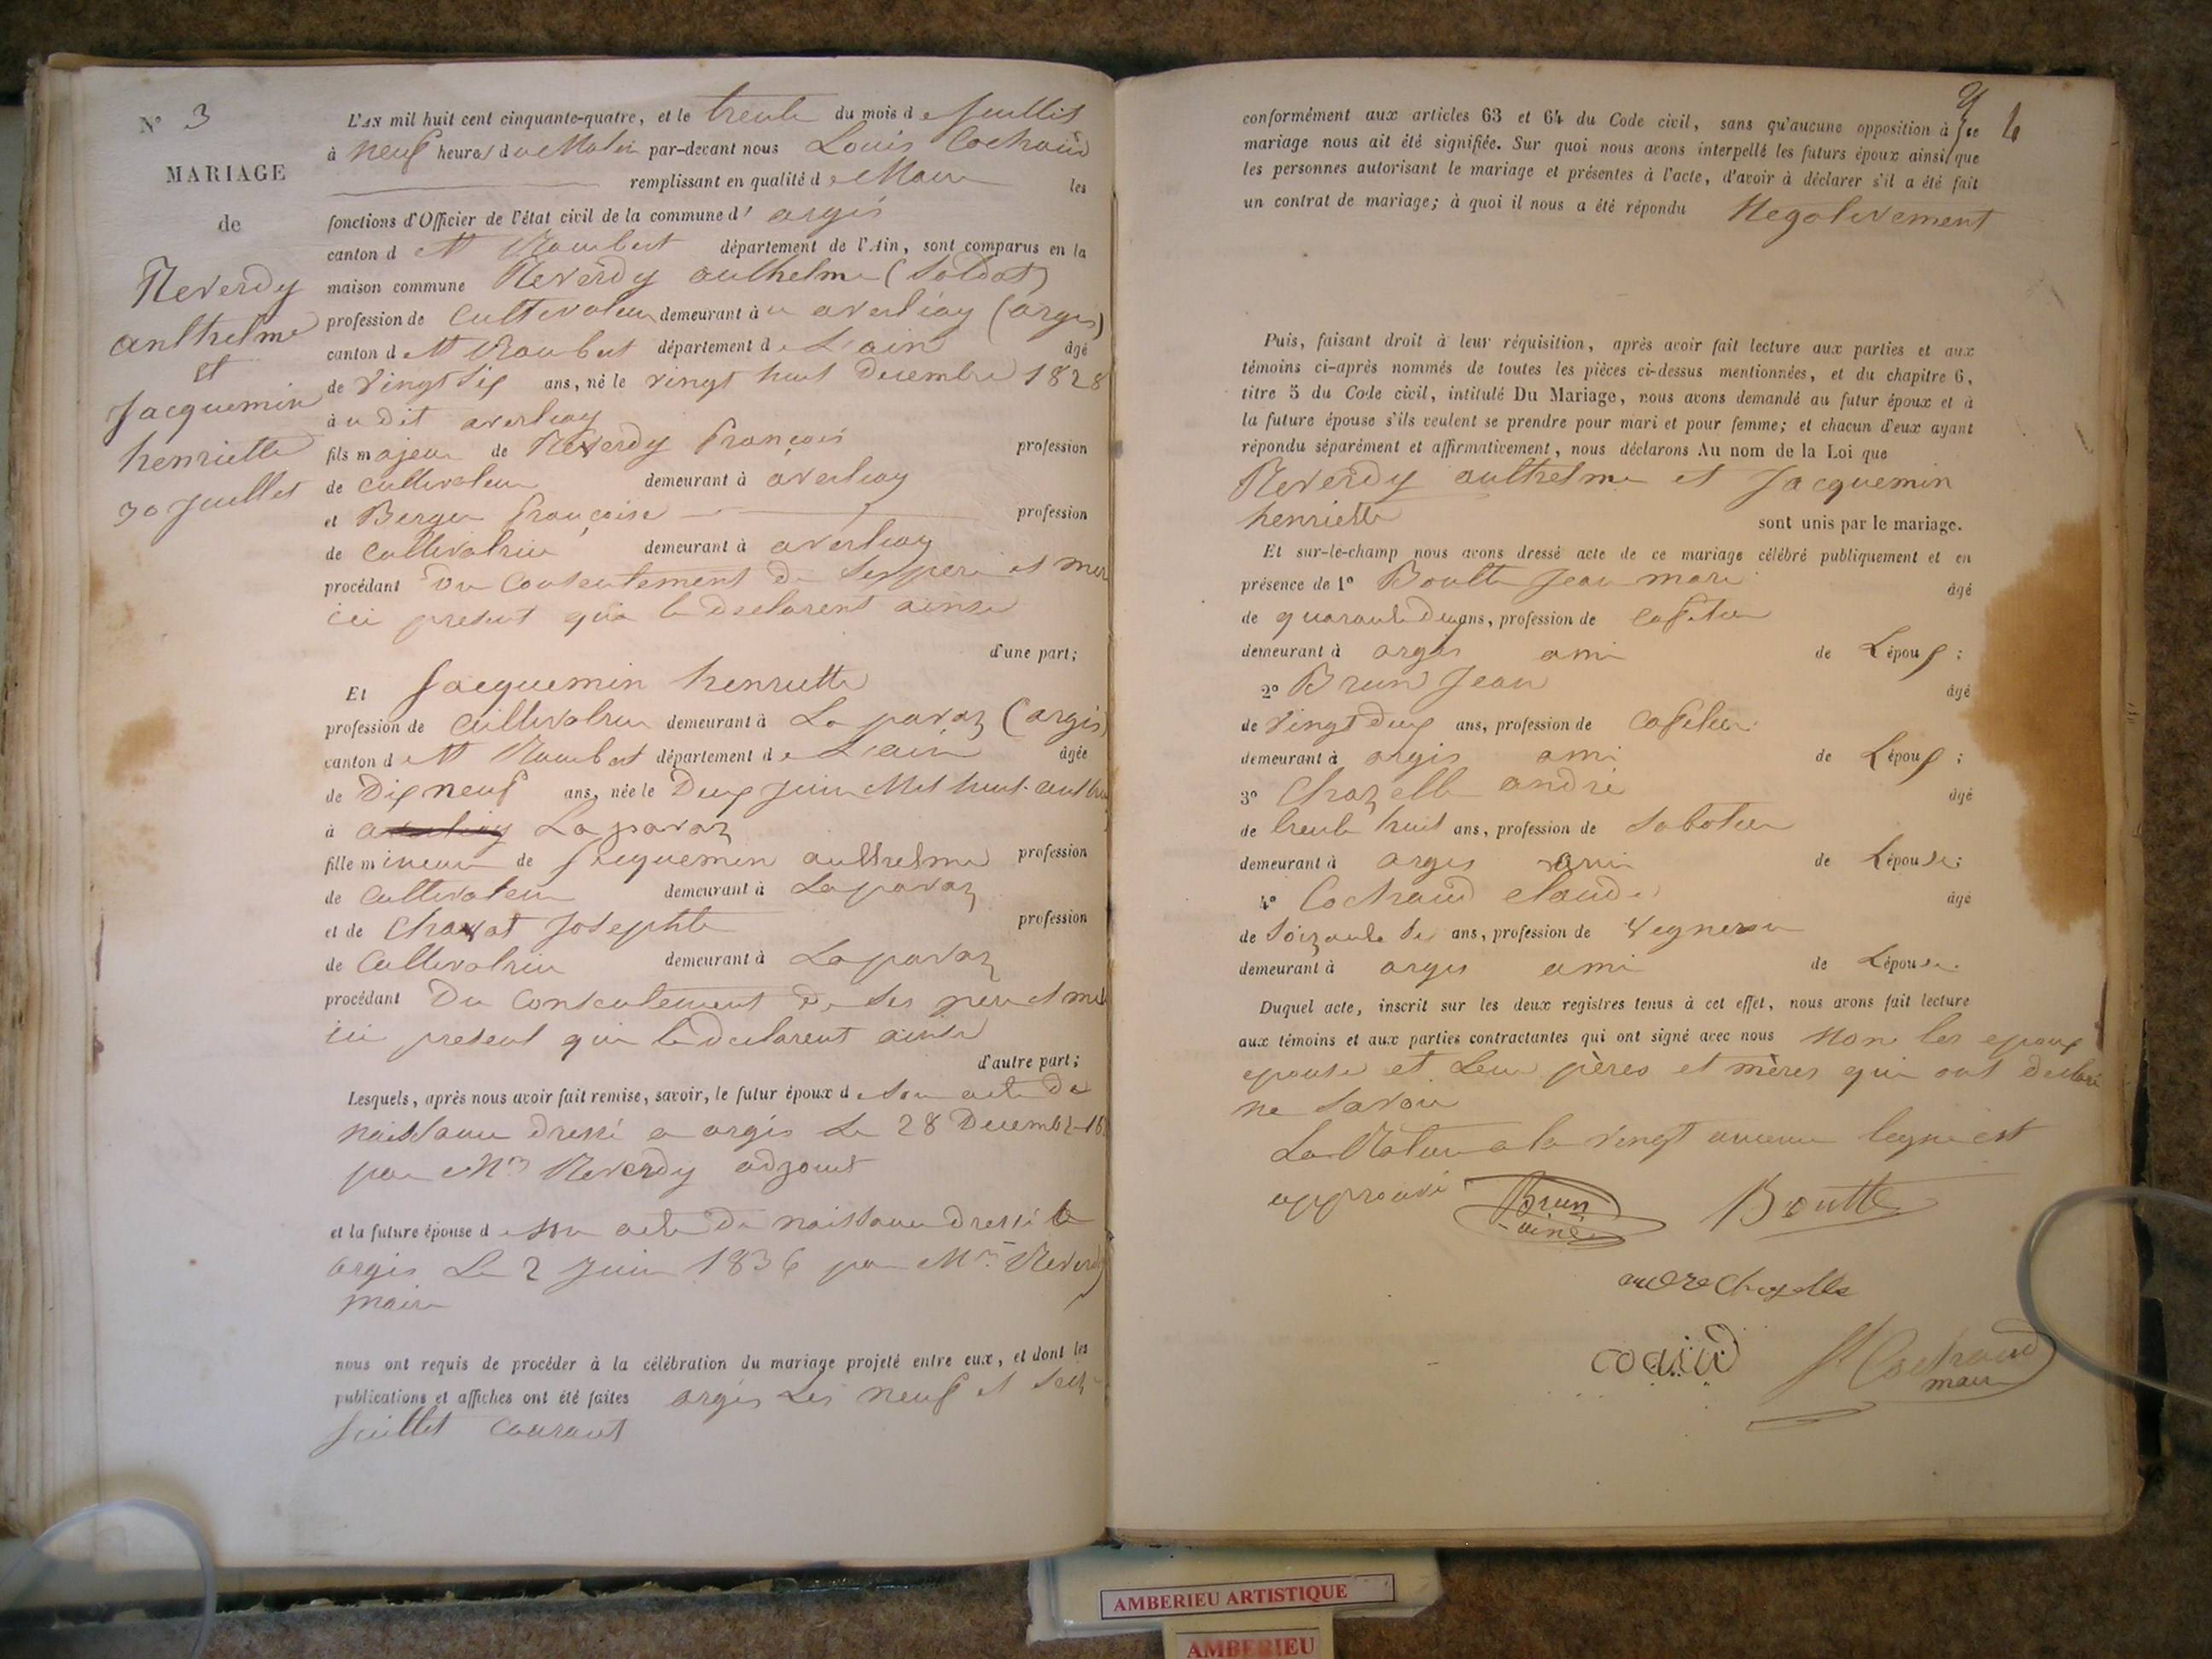 N° 3
MARIAGE
de
Reverdy
anthelme
et
Jacquemin
henriette
30 Juillet
L'AN mil huit cent cinquante-quatre, et le trente du mois de Juillet
à neuf heures du Matin par-devant nous Louis Cochaud
remplissant en qualité de Maire les
fonctions d'Officier de l'état civil de la commune d'argis
canton de St Rambert département de l'Ain, sont comparus en la
maison commune Reverdy anthelme (Soldat)
profession de Cultivateur demeurant à averliay (argis)
canton de St Rambert département de L'ain âgé
de vingt six ans, né le vingt huit Decembre 1828
à udit averliay
fils majeur de Reverdy françois profession
de cultivateur demeurant à averliay
et Berger françoise profession
de cultivatrice demeurant à averliay
procédant du Consentement de ses pere et mere
ici present qui le declarent ainsi
d'une part;
Et Jacquemin henriette
profession de cultivatrice demeurant à La pavaz (argis)
canton de St Rambert département de L'ain âgée
de Dix neuf ans, née le Deux Juin Mil huit cent
à La pavaz
fille mineure de Jacquemin anthelme profession
de Cultivateur demeurant à La pavaz
et de Chavat Josephte profession
de Cultivatrice demeurant à La pavaz
procédant Du Consentement de ses pere et mere
ici present qui le declarent ainsi
d'autre part;
Lesquels, après nous avoir fait remise, savoir, le futur époux de son acte de
naissance dressé a argis Le 28 Decembre
par Mr Reverdy adjoint
et la future épouse de son acte de naissance dressé a
argis Le 2 Juin 1836 par Mr Reverdy
maire
nous ont requis de procéder à la célébration du mariage projeté entre eux, et dont les
publications et affiches ont été faites argis Les neuf et seize
Juillet courant
4
conformément aux articles 63 et 64 du Code civil, sans qu'aucune opposition à ce
mariage nous ait été signifiée. Sur quoi nous avons interpellé les futurs époux ainsi que
les personnes autorisant le mariage et présentes à l'acte, d'avoir à déclarer s'il a été fait
un contrat de mariage; à quoi il nous a été répondu Negativement
Puis, faisant droit à leur réquisition, après avoir fait lecture aux parties et aux
témoins ci-après nommés de toutes les pièces ci-dessus mentionnées, et du chapitre 6,
titre 5 du Code civil, intitulé Du Mariage, nous avons demandé au futur époux et à
la future épouse s'ils veulent se prendre pour mari et pour femme; et chacun d'eux ayant
répondu séparément et affirmativement, nous déclarons Au nom de la Loi que
Reverdy anthelme et Jacquemin
henriette sont unis par le mariage.
Et sur-le-champ nous avons dressé acte de ce mariage célébré publiquement et en
présence de 1° Boutte Jean marie âgé
de quarante deux ans, profession de Cafetier
demeurant à argis ami de L'époux;
2° Brun Jean âgé
de vingt deux ans, profession de Cafetier
demeurant à argis ami de L'époux;
3° Chazelle andré âgé
de trente huit ans, profession de Sabotier
demeurant à argis ami de L'épouse;
4° Cochaud claude âgé
de soizante six ans, profession de Vigneron
demeurant à argis ami de L'épouse.
Duquel acte, inscrit sur les deux registres tenus à cet effet, nous avons fait lecture
aux témoins et aux parties contractantes qui ont signé avec nous Non les epoux
epouse et Leur pères et mères qui ont declaré
ne Savoir
La Rature a la vingt unieme ligne est
approuvé Brun
ainé Boutte
andre Chazelle
coaud Cochaud
maire
AMBERIEU ARTISTIQUE
AMBERIEU